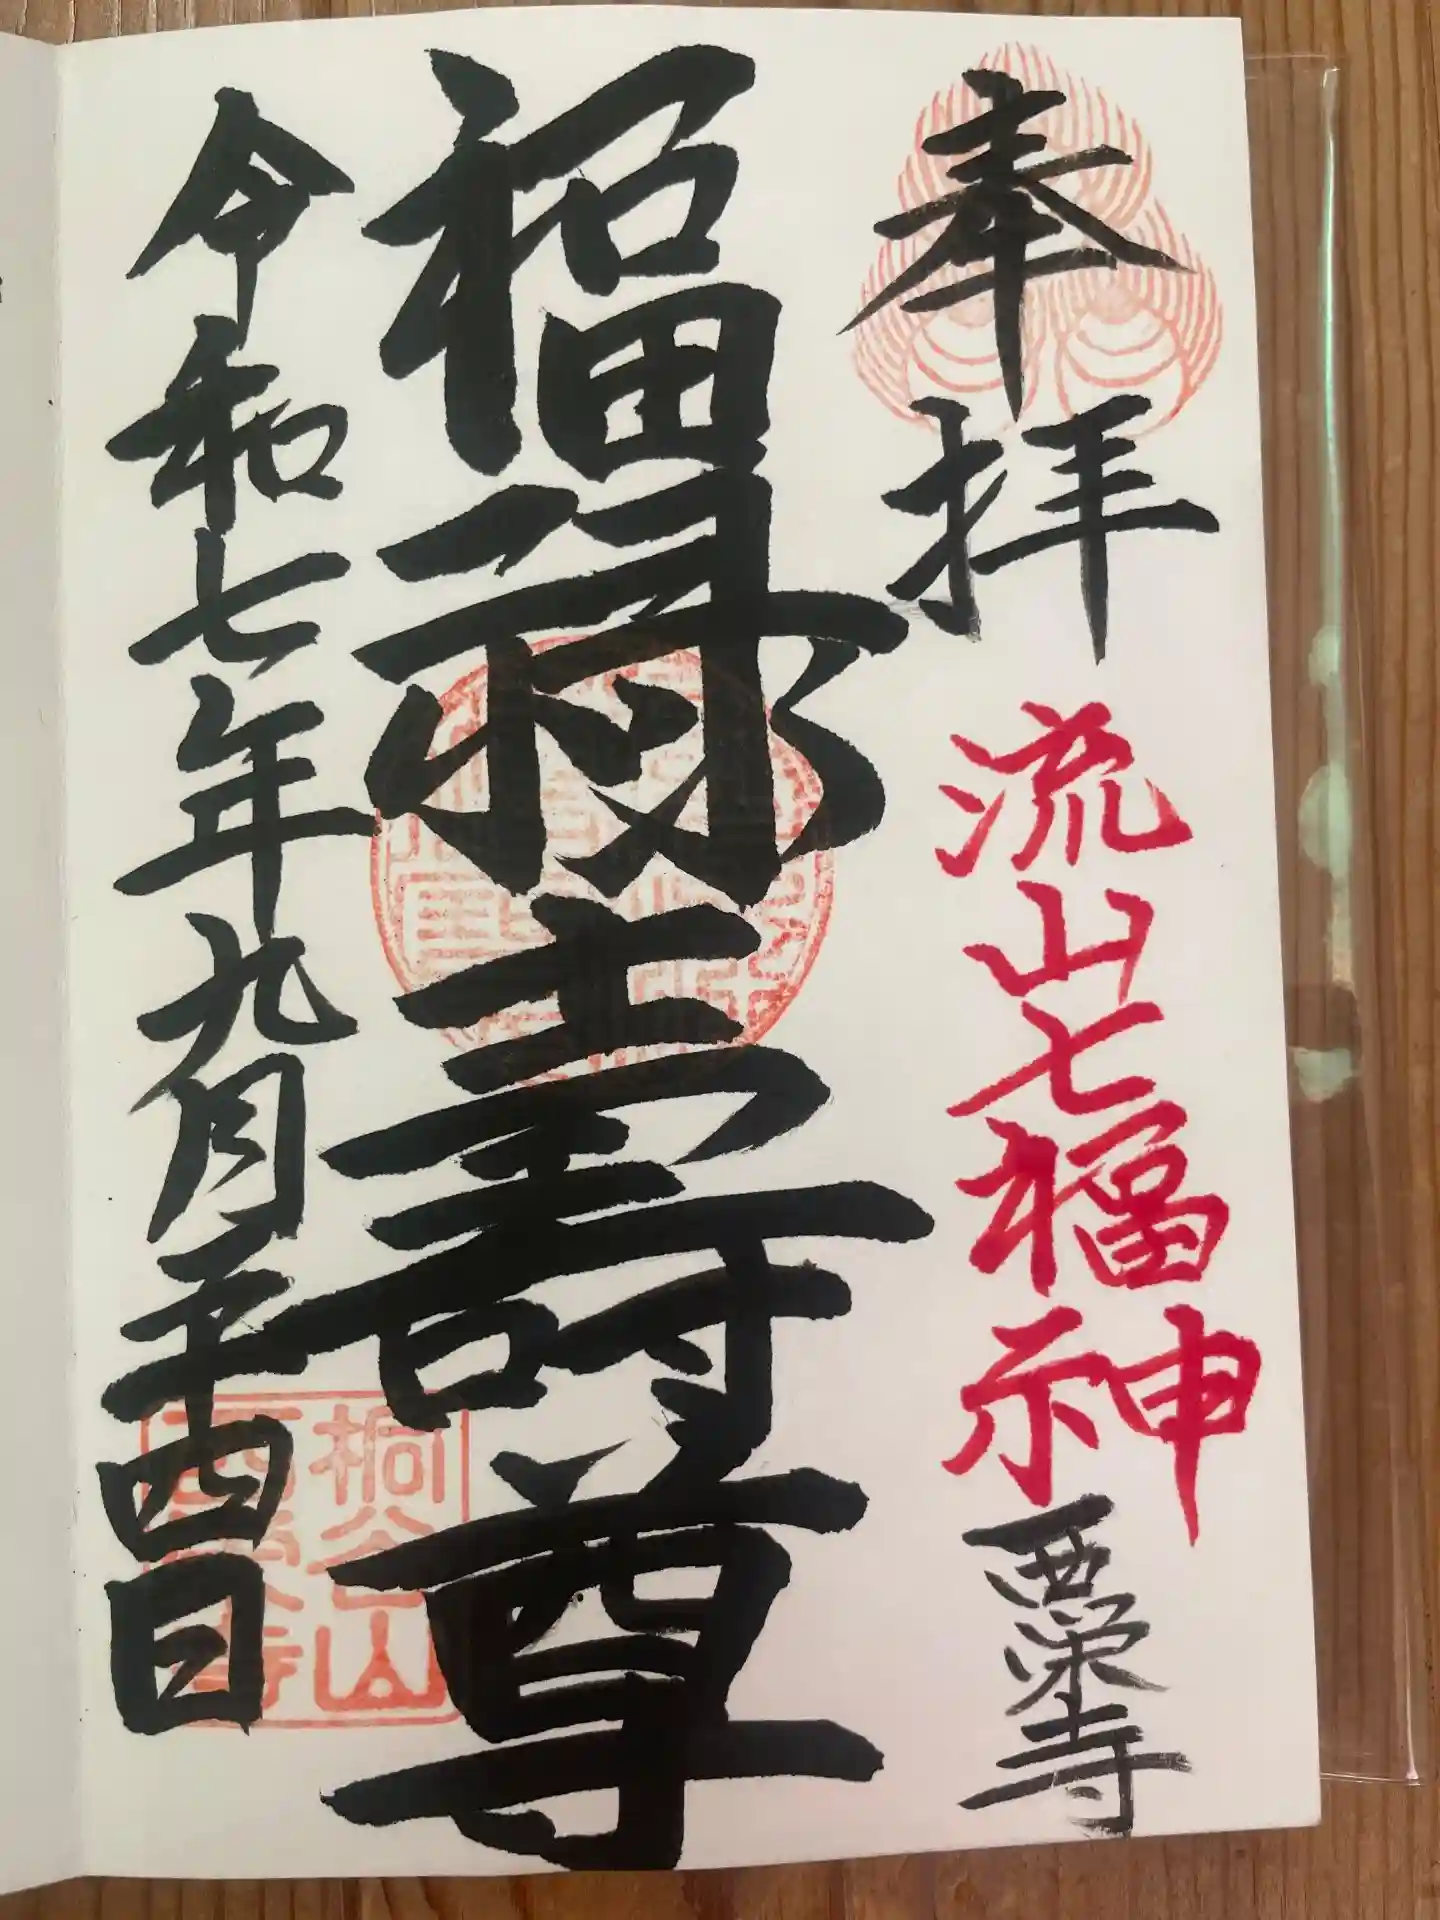 奉拝
流山七福神
西栄寺
福禄壽尊
令和七年九月二十四日
桐谷山
西栄寺